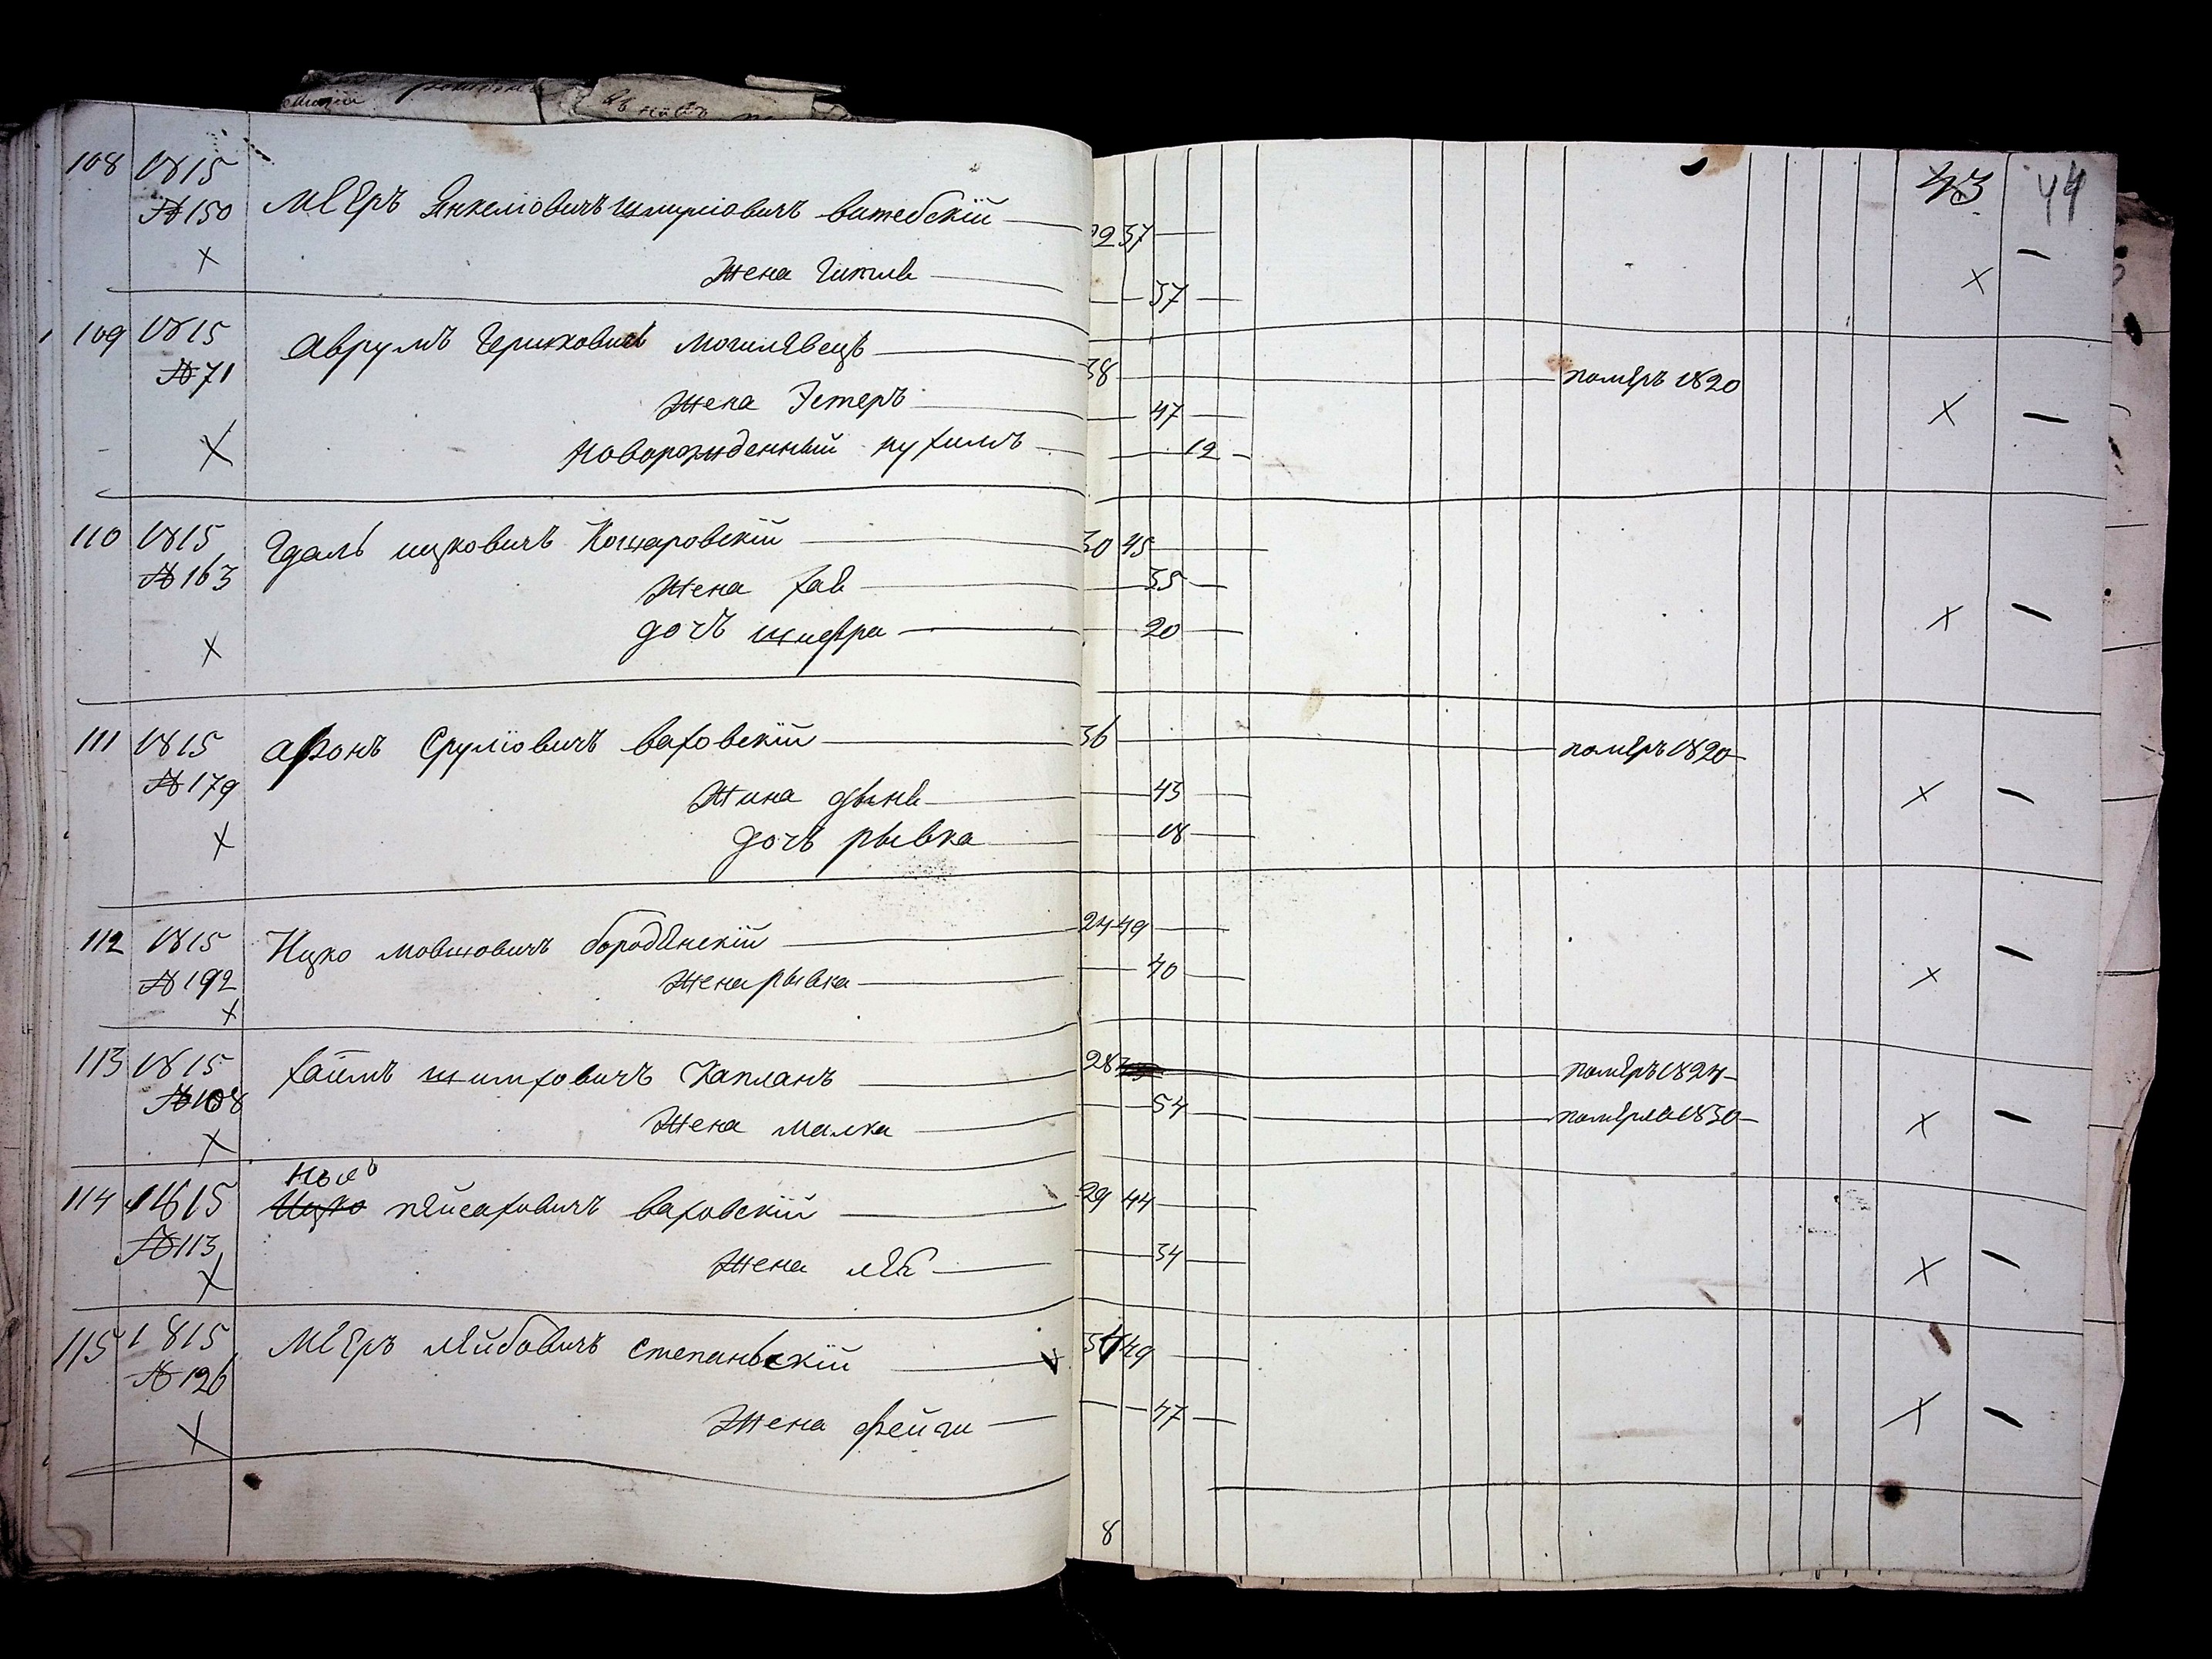 43 44
108 1815 №150 Меѣръ Янкеліовичъ Шмуліовичъ витебскій 22 37
х Жена Гитля 37 х
109 1815 №71 Аврумъ Гершковичъ Могилявецъ 38 померъ 1820
Жена Эстеръ 47 х
х Новорожденный нухимъ 12
110 1815 №163 Гдаль ицковичъ Кошаровскій 30 45
Жена хая 35
х дочъ шифра 20 х
111 1815 №179 Аронъ Сруліовичъ ваховскій 36 померъ 1820
Жина 43 х
х дочъ рывка 18
112 1815 №192 Ицко мовшовичъ бородянскій 24 49
х Жена рывка 40 х
113 1815 №108 хаимъ шимховичъ Капланъ 28 померъ 1824
х Жена малка 54 померла 1830 х
114 1815 №113 Ицко пейсаховичъ ваховскій 29 44
х Жена лея 34 х
115 1815 №126 Меѣръ лейбовичъ степаньскій 49
х Жена фейги 47 х
8